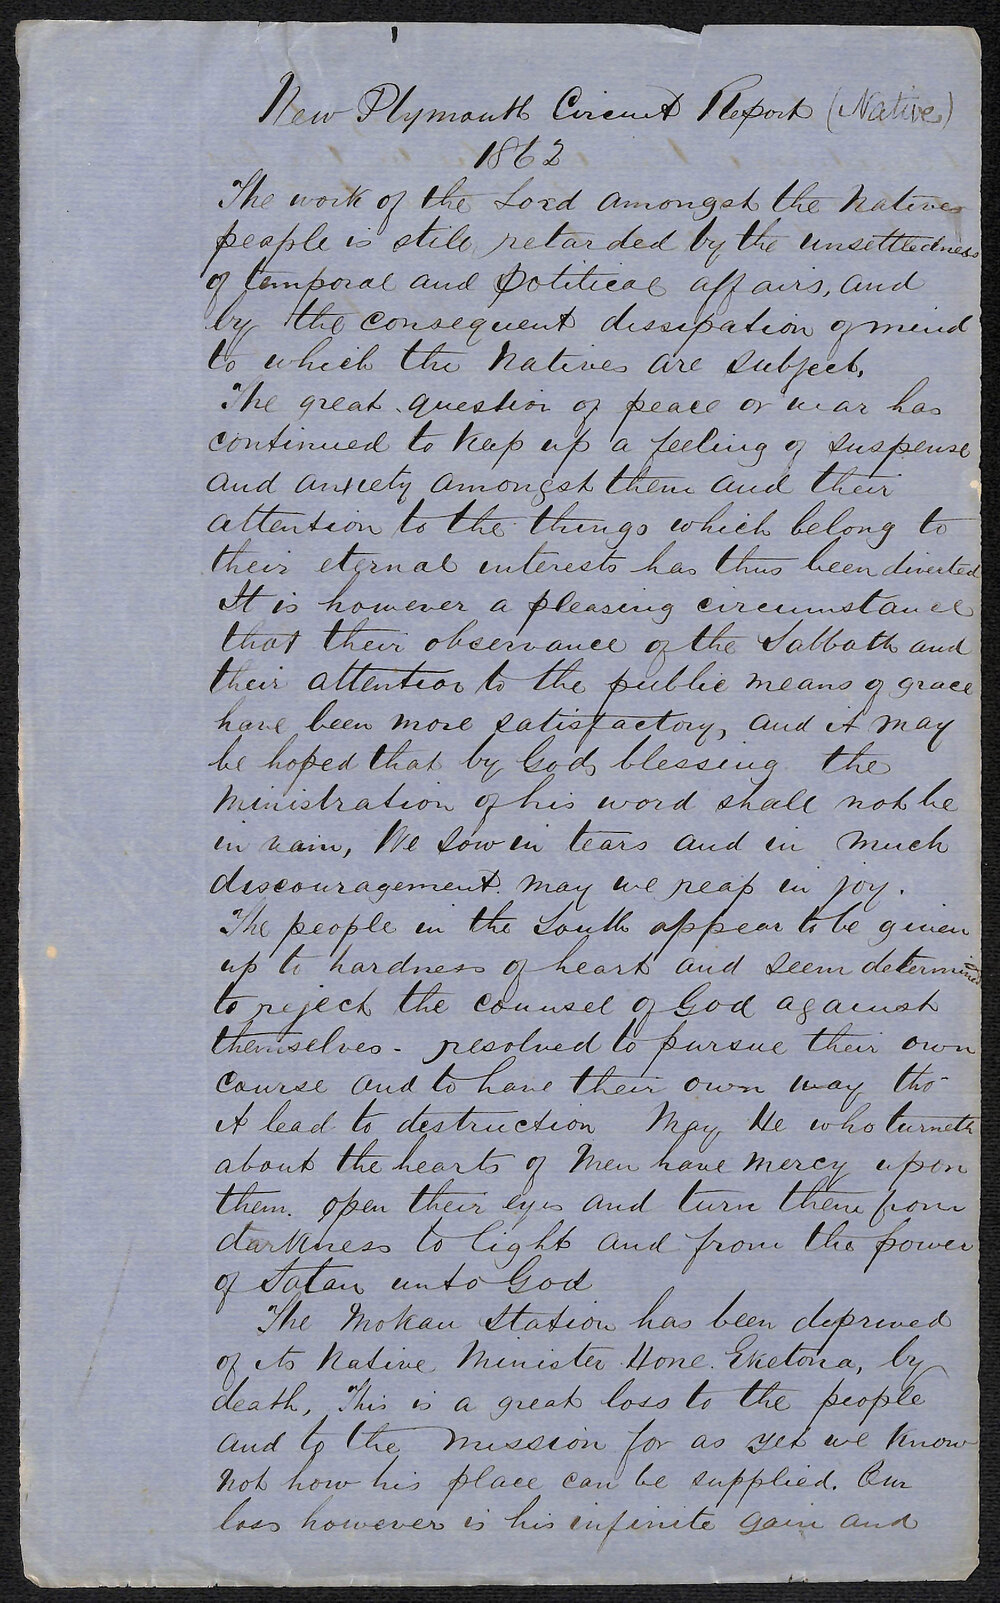 New Plymouth Circuit Report (Native)
1862
The work of the Lord amongst the Native
people is still retarded by the unsettledness
of temporal and political affairs, and
by the consequent dissipation of mind
to which the Natives are subject.
The great question of peace or war has
continued to keep up a feeling of suspense
and anxiety amongst them and their
attention to the things which belong to
their eternal interests has thus been diverted
It is however a pleasing circumstance
that their observance of the Sabbath and
their attention to the public means of grace
have been more satisfactory, and it may
be hoped that by Gods blessing the
ministration of his word shall not be
in vain, We sow in tears and in much
discouragement. may we reap in joy.
The people in the South appear to be given
up to hardness of heart and seem determined
to reject the counsel of God against
themselves - resolved to pursue their own
course and to have their own way tho
it lead to destruction May He who turneth
about the hearts of Men have mercy upon
them. open their eyes and turn them from
darkness to light and from the power
of Satan unto God
The Mokau Station has been deprived
of its Native Minister Hone Eketona, by
death, This is a great loss to the people
and to the Mission for as yet we know
not how his place can be supplied. Our
loss however is his infinite gain and